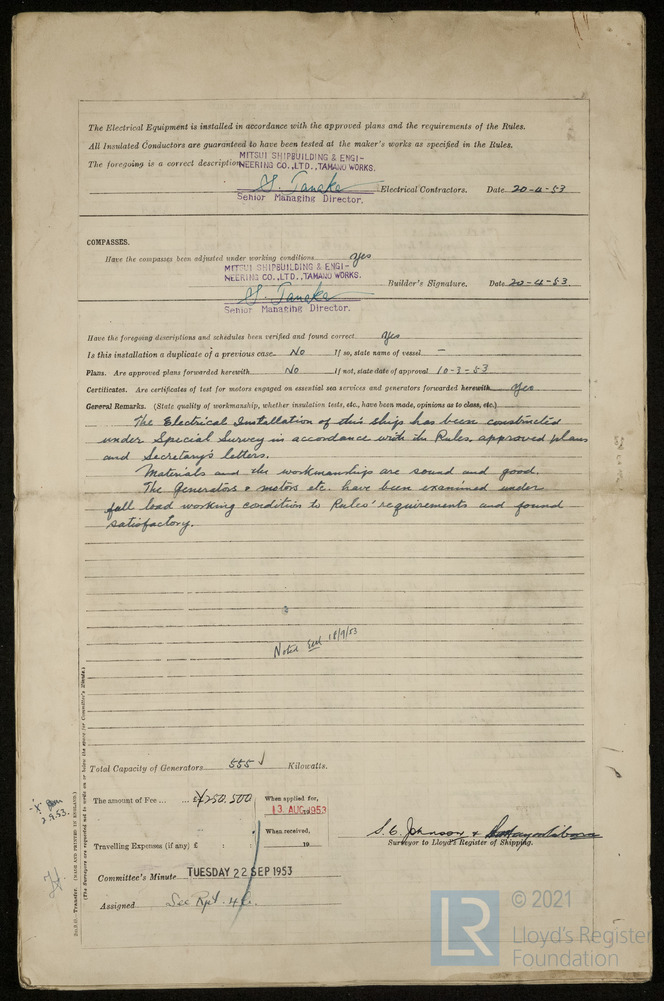 The Electrical Equipment is installed in accordance with the approved plans and the requirements of the Rules.
All Insulated Conductors are guaranteed to have been tested at the maker's works as specified in the Rules.
The foregoing is a correct description
MITSUI SHIPBUILDING & ENGI-
NEERING CO.,LTD.,TAMANO WORKS.
Electrical Contractors. Date 20-4-53
Senior Managing Director.
COMPASSES.
Have the compasses been adjusted under working conditions yes
MITSUI SHIPBUILDING & ENGI-
NEERING CO.,LTD.,TAMANO WORKS.
Builder's Signature. Date 20-4-53.
Senior Managing Director.
Have the foregoing descriptions and schedules been verified and found correct yes
Is this installation a duplicate of a previous case No If so, state name of vessel —
Plans. Are approved plans forwarded herewith No If not, state date of approval 10-3-53
Certificates. Are certificates of test for motors engaged on essential sea services and generators forwarded herewith yes
General Remarks. (State quality of workmanship, whether insulation tests, etc., have been made, opinions as to class, etc.)
The Electrical Installation of this ship has been constructed
under Special Survey in accordance with the Rules, approved plans
and Secretary's letters.
Materials and the workmanship are sound and good.
The Generators & motors etc. have been examined under
full load working condition to Rules' requirements and found
satisfactory.
Noted 18/9/53
Total Capacity of Generators 555 Kilowatts.
The amount of Fee ... ... ¥250,500
When applied for,
13 AUG 1953
When received,
19
Travelling Expenses (if any) £ : :
S. C. Johnson &
Surveyor to Lloyd's Register of Shipping.
2.9.53.
Committee's Minute TUESDAY 22 SEP 1953
Assigned See Rpt. 4c.
(MADE AND PRINTED IN ENGLAND.)
(The Surveyors are requested not to write on or below the space for Committee's Minute.)
© 2021
LR
Lloyd's Register
Foundation